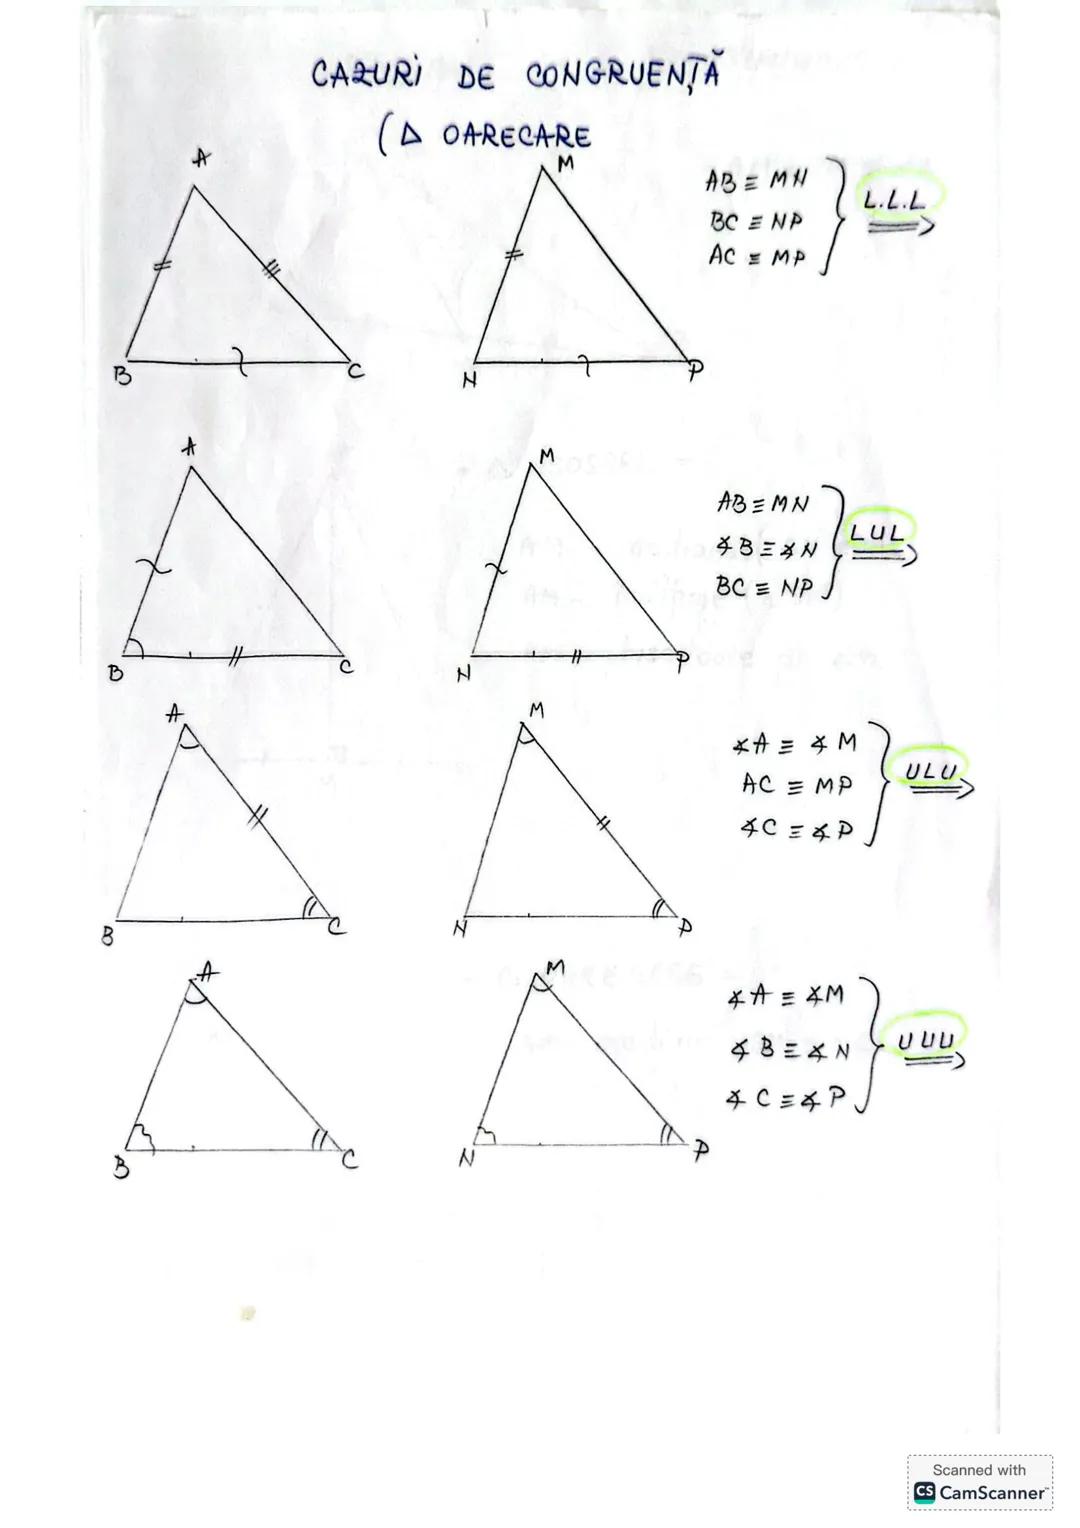 CAZURI DE CONGRUENȚĂ
(Δ OARECARE
A
M
B
C
N
P
AB ≡ MN
BC ≡ NP
AC ≡ MP
L.L.L
A
M
B
C
N
P
AB ≡ MN
∢B ≡ ∢N
BC ≡ NP
LUL
A
M
B
C
N
P
∢A ≡ ∢M
AC ≡ MP
∢C ≡ ∢P
ULU
A
M
B
C
N
P
∢A ≡ ∢M
∢B ≡ ∢N
∢C ≡ ∢P
UUU
Scanned with
CS CamScanner